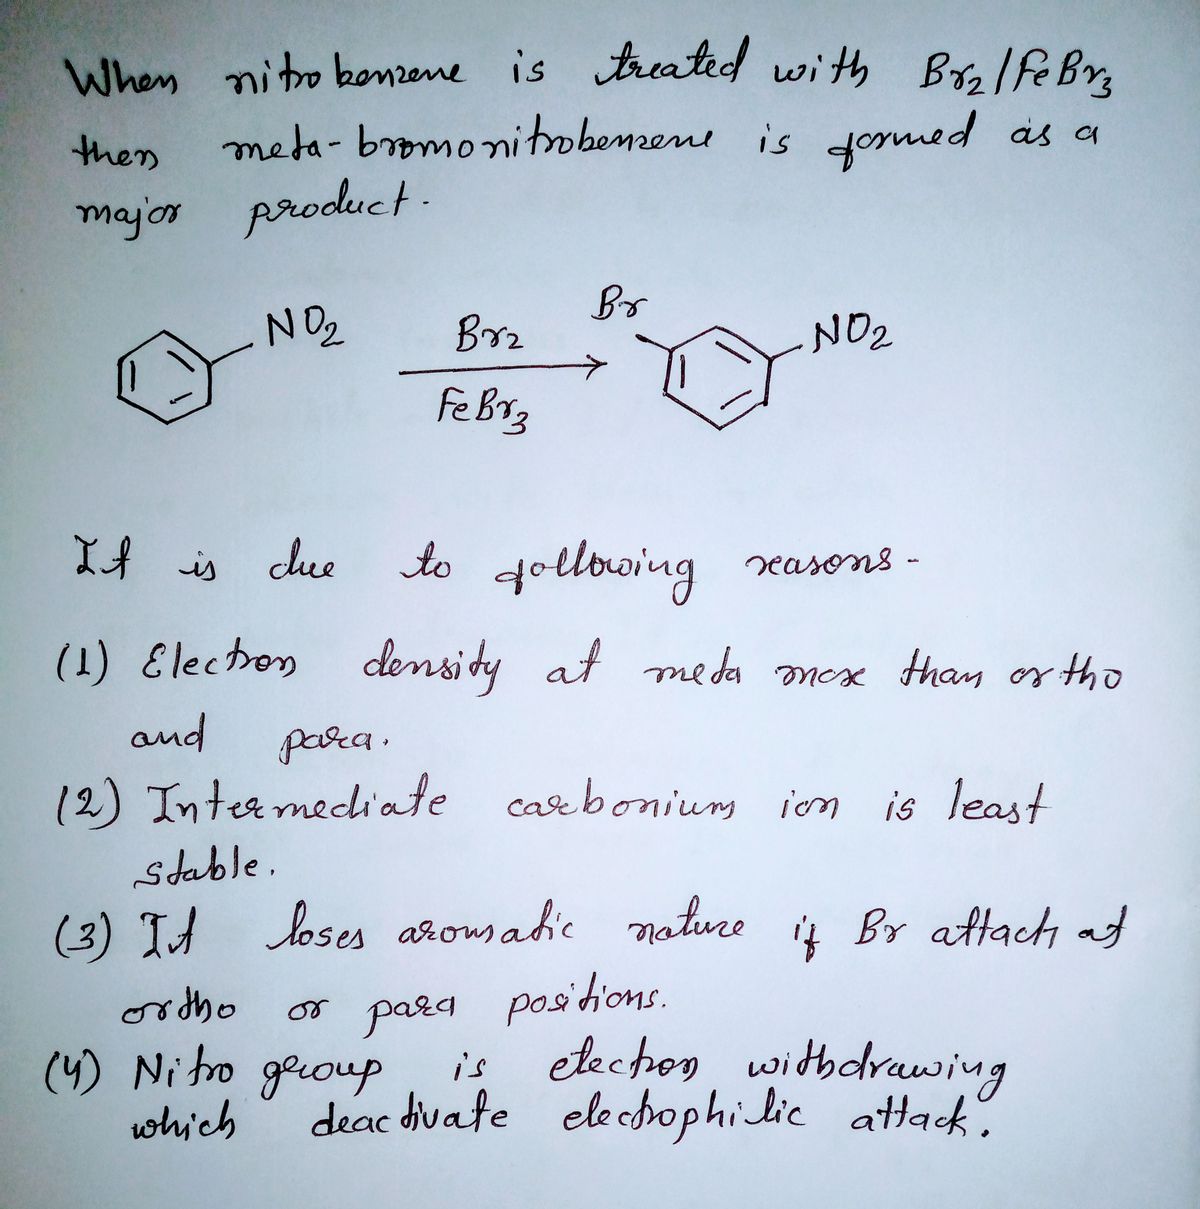 When nitrobenzene is treated with Br2/FeBr3
then meta-bromonitrobenzene is formed as a
major product.
NO2
Br2
FeBr3
Br
NO2
It is due to following reasons-
(1) Electron density at meta more than ortho
and para.
(2) Intermediate carbonium ion is least
stable.
(3) It loses aromatic nature if Br attach at
ortho or para positions.
(4) Nitro group is electron withdrawing
which deactivate electrophilic attack.